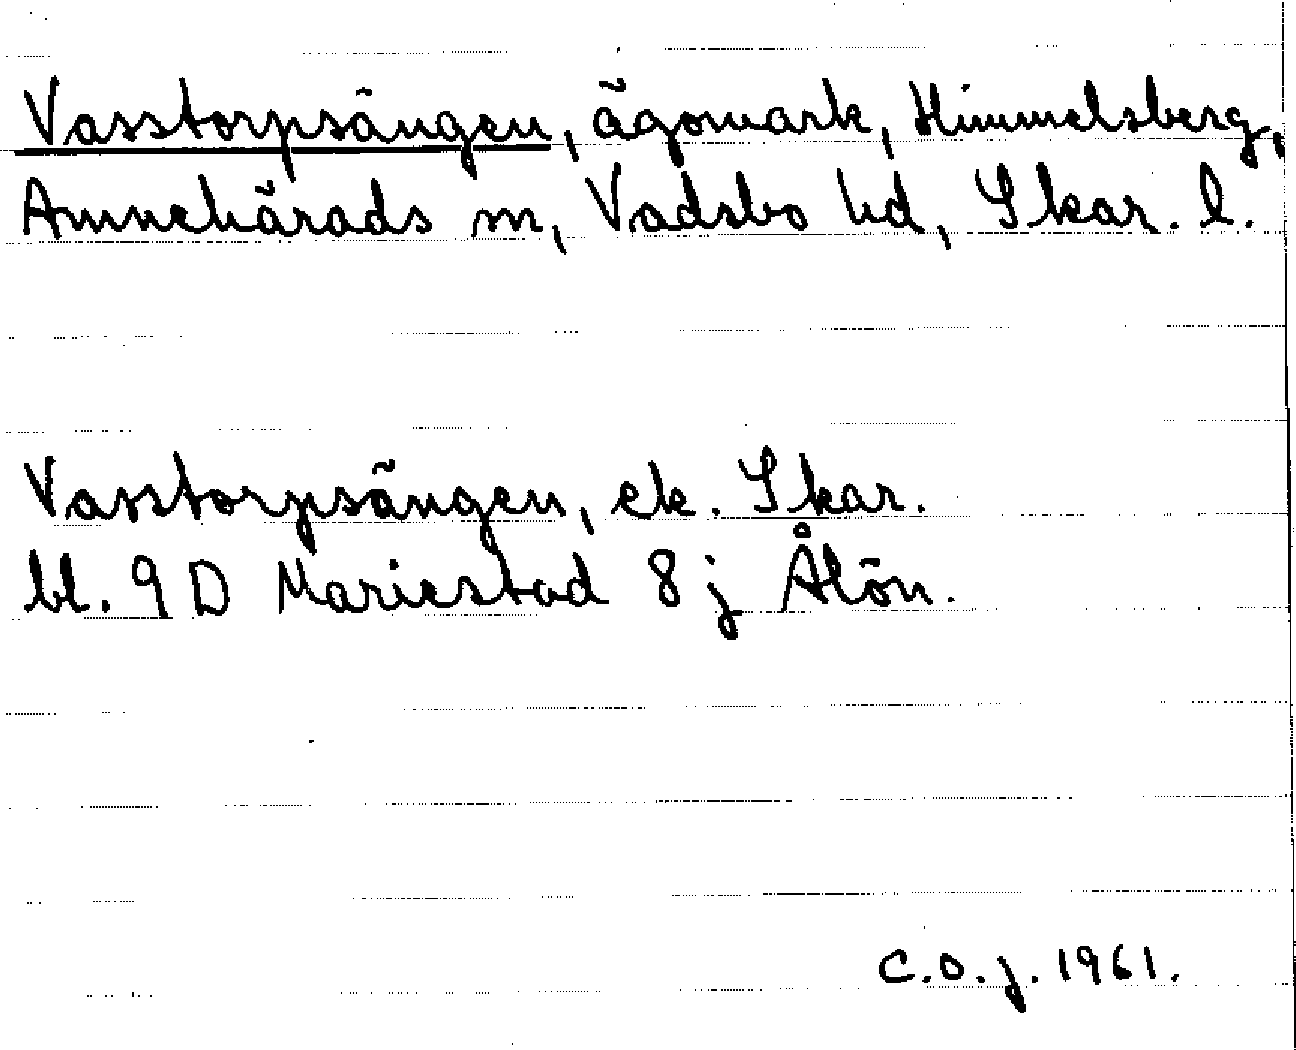 Vasstorpsängen, ägomark, Himmelsberg,
Amnehärads sn, Vadsbo hd, Skar. l.
Vasstorpsängen, ek. Skar.
bl. 9 D Mariestad 8 j Årön.
C.O.J. 1961.